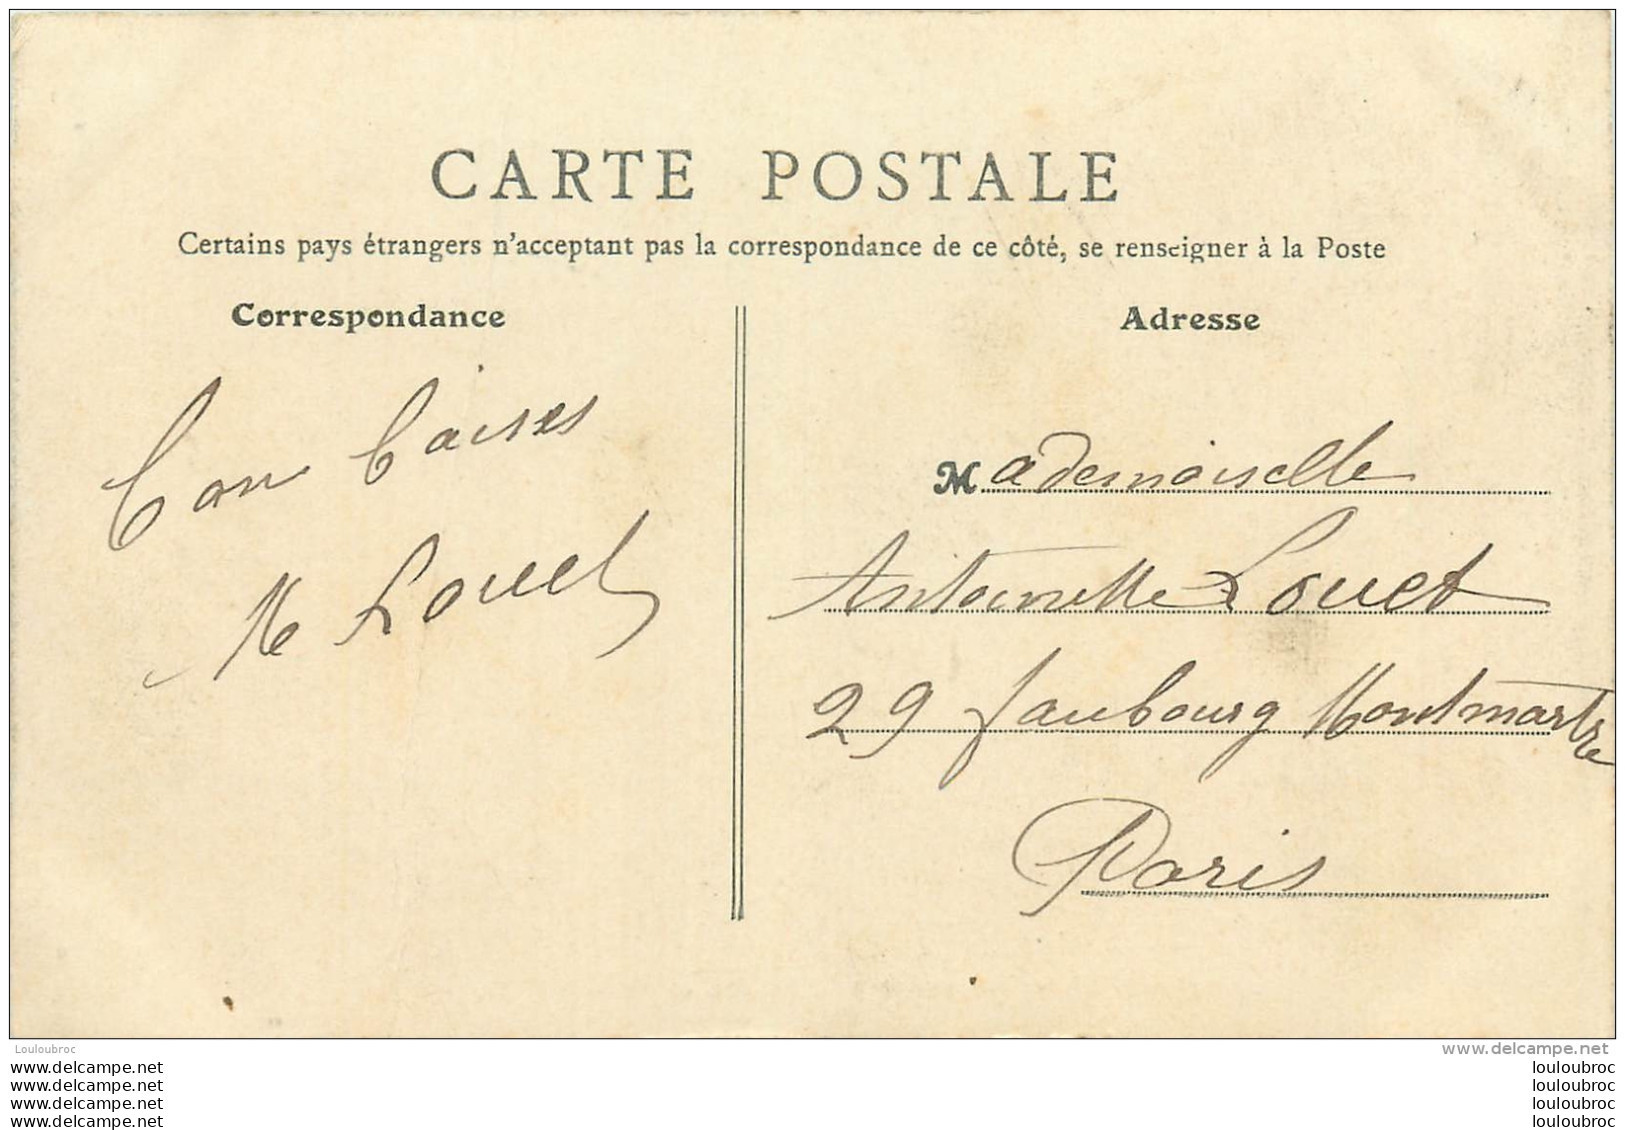 CARTE POSTALE
Certains pays étrangers n'acceptant pas la correspondance de ce côté, se renseigner à la Poste
Correspondance
Bons Baisers
M Louet
Adresse
Mademoiselle
Antoinette Louet
29 faubourg Montmartre
Paris
Louloubroc
www.delcampe.net
www.delcampe.net
louloubroc
www.delcampe.net
louloubroc
www.delcampe.net
louloubroc
www.delcampe.net
louloubroc